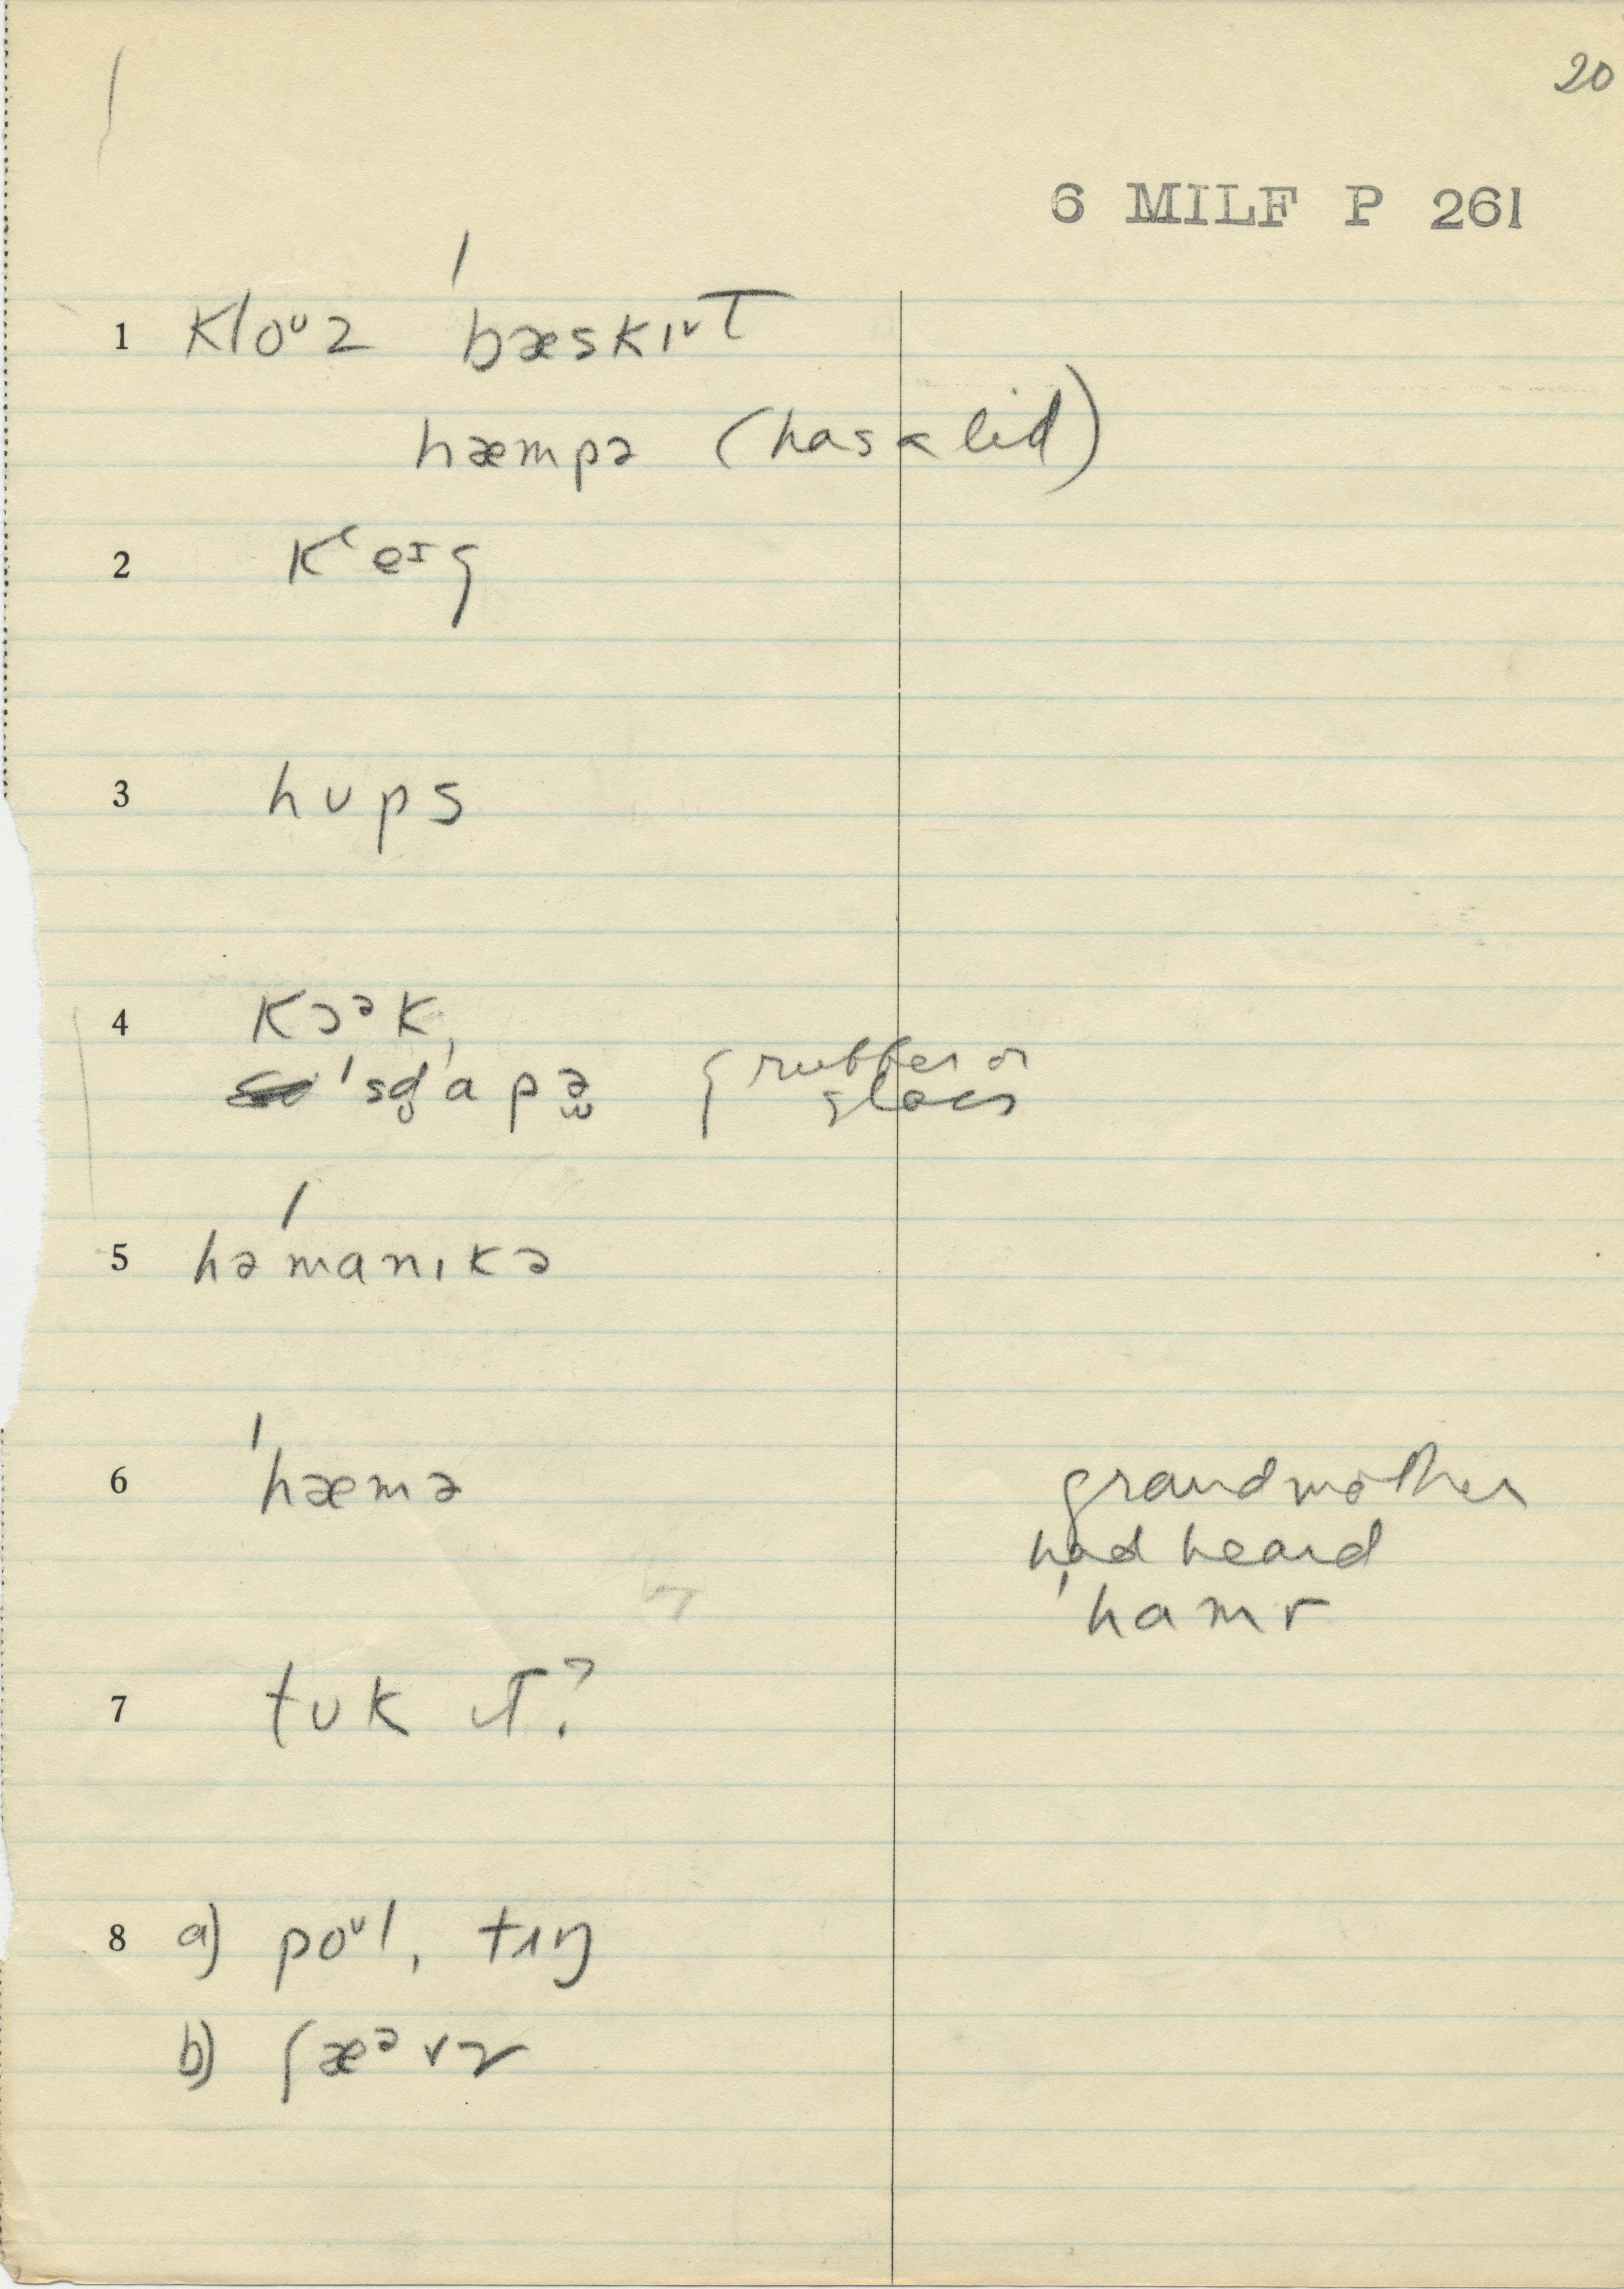 20
6 MILF P 261
1 kloᶷz ˈbæskɪᵛt
hæmpə (has a lid)
2 kʻeɪg
3 hᴜps
4 kɔᵊk,
ˈsd̥ɑpə { rubber or
glass
5 həˈmanɪkə
6 ˈhæmə grandmother
had heard
ˈhamr
7 tᴜk ɪt?
8 a) poᶷl, tʌŋ
b) ʃæᵊvz